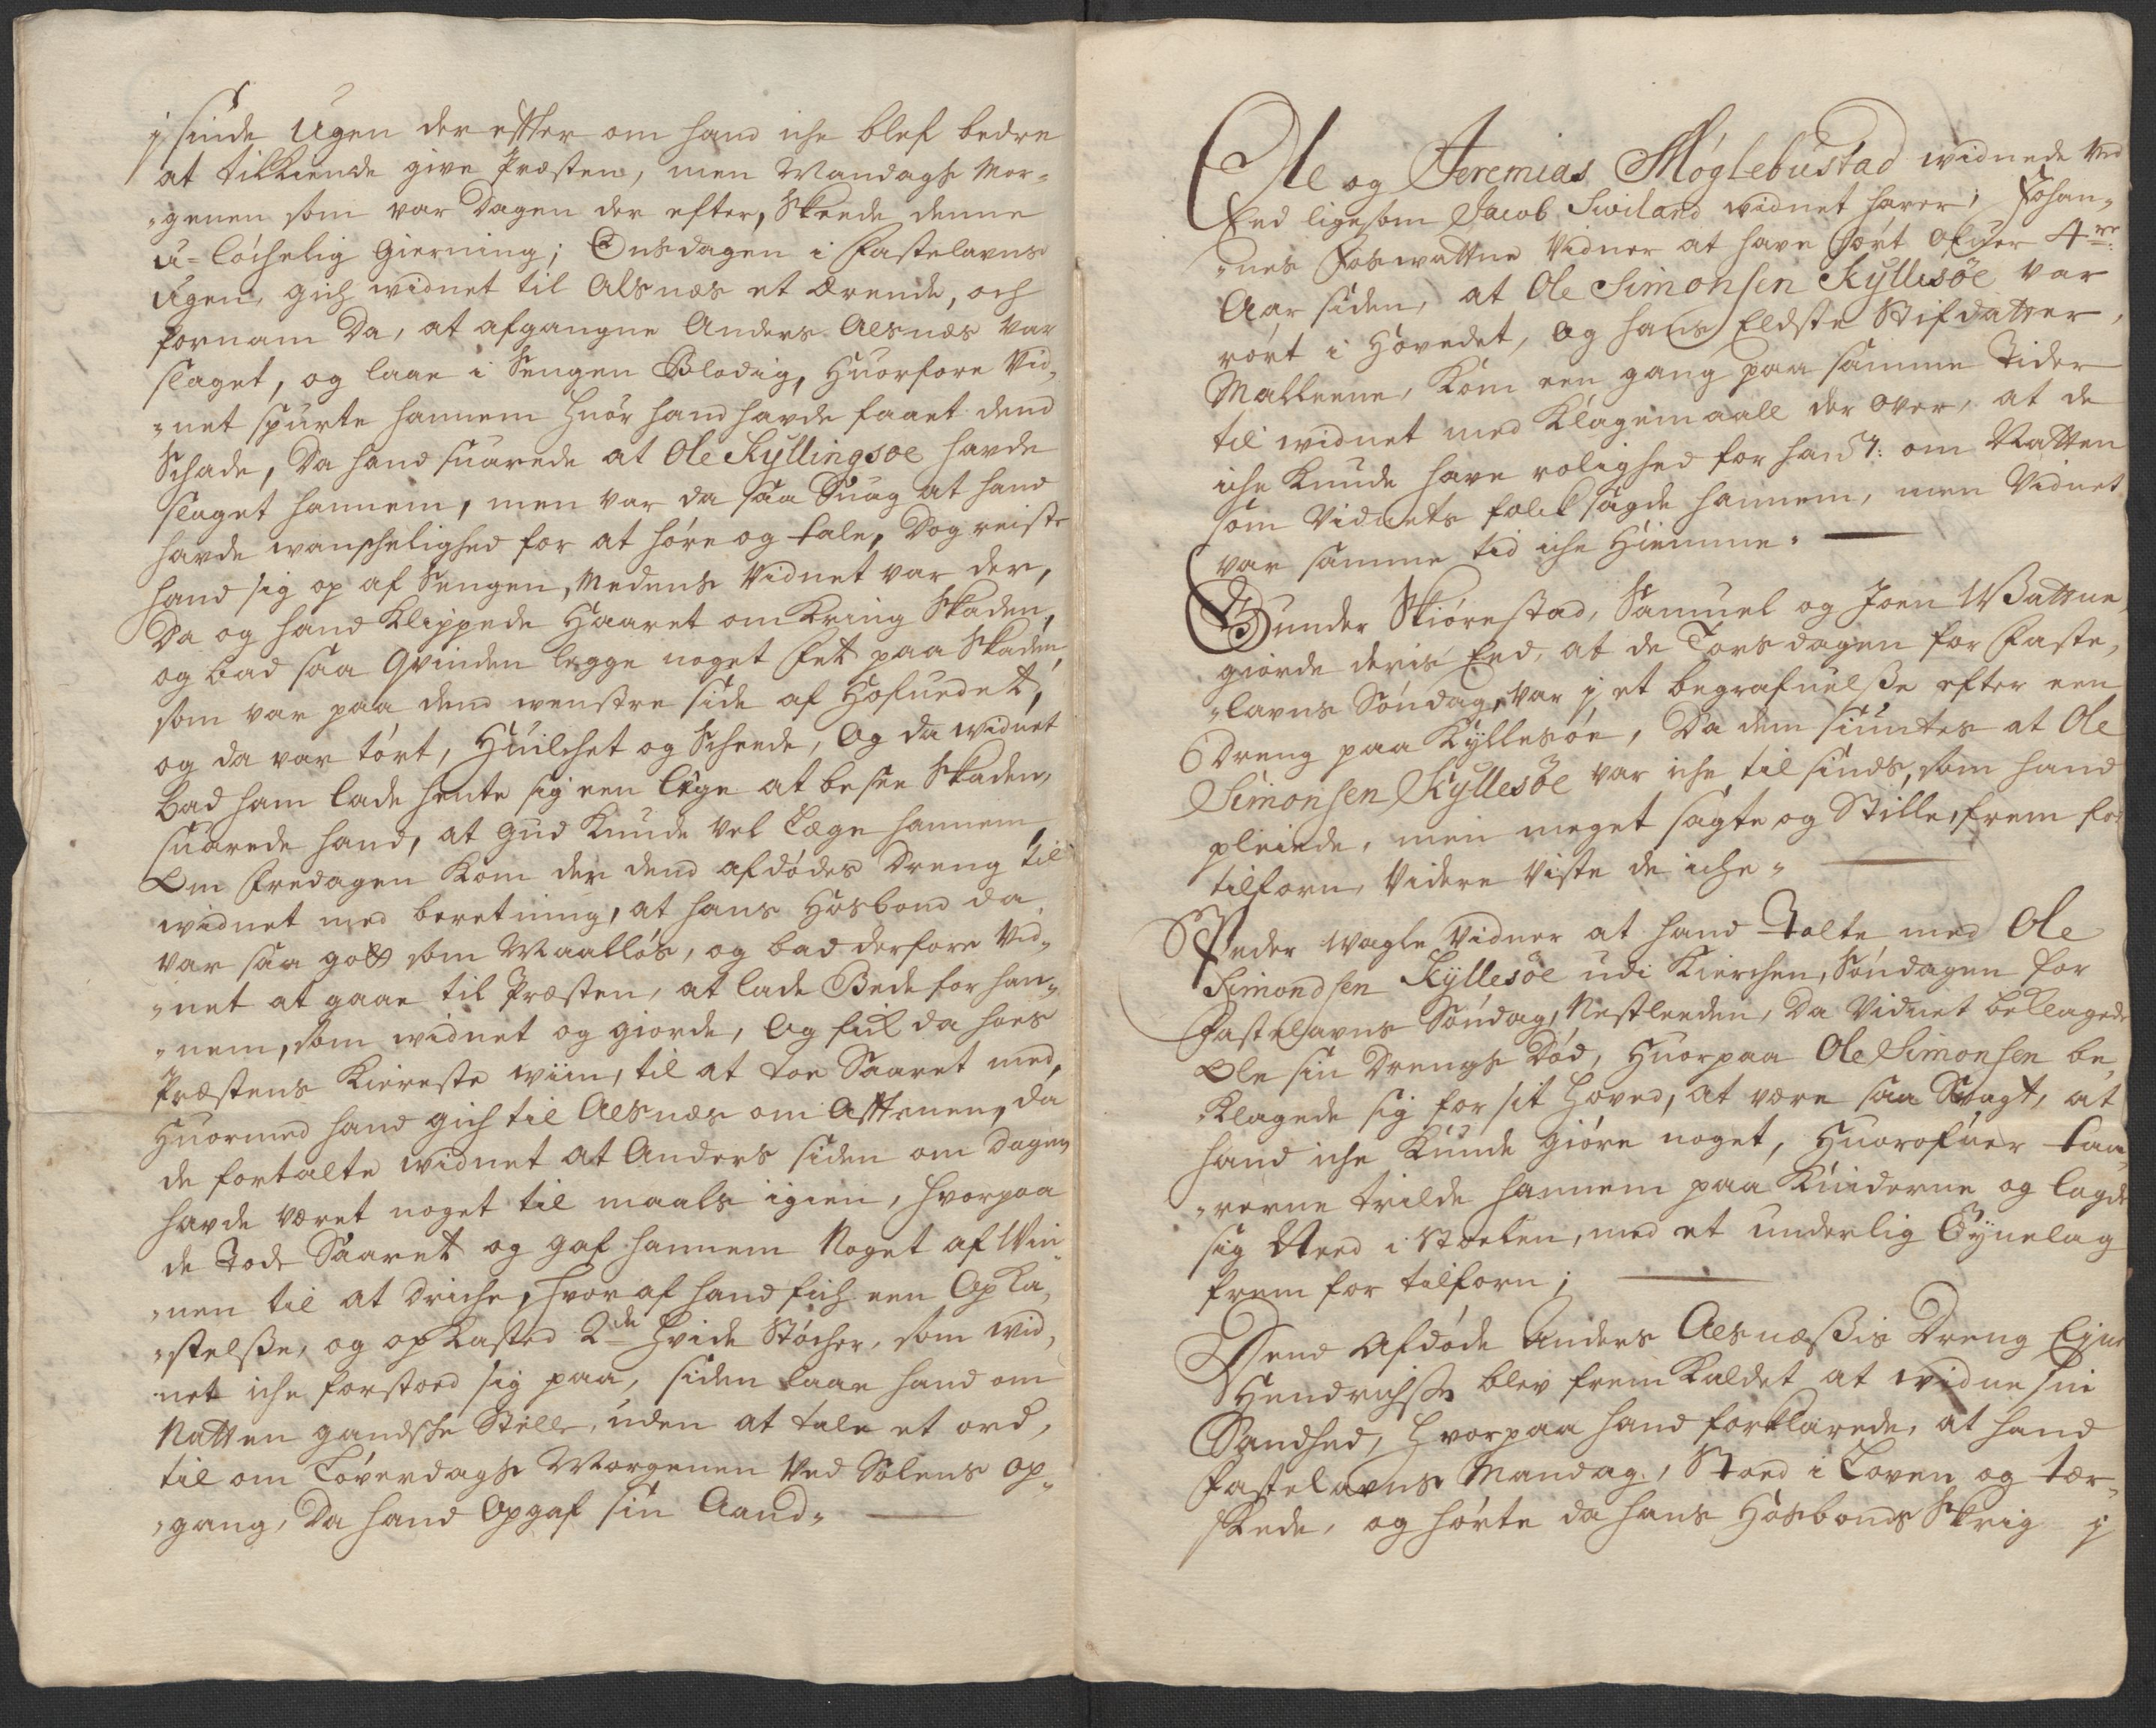 j sinde Ugen der effter om hand iche blef bedre
at tilkiende give Præsten, men Mandags Mor-
„genen som var Dagen der efter, Skeede denne
u-løchelig Gierning; Onsdagen i Fastelavns
Ugen, gich widnet til Alsnæs et Ærende, och
fornam Da, at afgangne Anders Aesnæs var
slaget, og laae i Sengen Blodig, Huorfore Vid„
„net spurte hannem Huor hand havde faaet dend
Schade, Da hand suarede at Ole Kyllingsøe havde
slaget hannem, men var da saa Suag at hand
havde wanschelighed for at høre og tale, Dog reiste
hand sig op af Sengen, Medens Vidnet var der,
Da og hand Klippede Haaret omkring Skaden,
og bad saa Qvinden legge noget Fet paa Skaden
som var paa dend wenstre side af Hofuedet,
og da var tørt, Huilchet og Scheede, Og da widnet
bad ham lade hente sig een læge at besee Skaden,
suarede hand, at Gud Kunde vel Læge hannem,
Om Fredagen Kom der dend afdødes Dreng til
widnet med beretning, at hans Hosbond da
var saa gott som Maalløs, og bad derfore Vid„
„net at gaae til Præsten, at lade Bede for han„
„nem, som widnet og giorde, Og fik da hoes
Præstens Kiereste wiin, til at toe Saaret med,
Huormed hand gich til Aesnæs om Afftenen, da
de fortalte widnet at Anders siden om Dagen
havde været noget til maals igien, hvorpaa
de Tode Saaret og gaf hannem Noget af Win„
„nen til at Driche, hvor af hand fich een Opka„
„stelsse, og opkasted 2de Hvide Støcher, som wid„
„net iche forstoed sig paa, siden laae hand om
Natten gandsche Stille, uden at tale et ord,
til om Løverdags Morgenen Ved Solens op„
„gang, Da hand Opgaf sin Aand„
Ole og Jeremias Møglebustad widnede Ved
Eed ligesom Jacob Swiland widnet haver; Johan„
„nes Foswattne Vidner at have hørt Ofuer 4re
Aar siden, at Ole Simonsen Kyllesøe var
rørt i Hovedet, Og hans Eldste Stifdatter,
Malleene, Kom een gang paa samme Tider
til widnet med Klagemaall der over, at de
iche Kunde have rolighed for ham: om Natten
som Vidnets folck sagde hannem, men Vidnet
var samme tid iche Hiemme„
Gunder Skiørestad, Samuel og Joen Wattne,
giorde deris Eed, at de Torsdagen for Faste„
„lavns Søndag, var j et begrafuelsse efter een
Dreng paa Kyllesøe, Da dem siuntes at Ole
Simonsen Kyllesøe var iche til sinds, som hand
pleiede, men meget sagte og Stille, frem for
tilforn, Videre Viste de iche„
Peder Wagle Vidner at hand Talte med Ole
Simondsen Kyllesøe udi Kierchen, Søndagen for
Fastelavns Søndag, Nestleeden, Da Vidnet beklagede
Ole sin Drengs Død, Huorpaa Ole Simonsen be„
„klagede sig for sit Hoved, at være saa Svagt, at
hand iche Kunde giøre noget, Huorofuer taa„
„rerne trilde hannem paa Kinderne og lagde
sig Need i Stoelen, med et underlig Øynelag
frem for tilforn;
Dend Afdøde Anders Aesnæssis Dreng
Hendrichss blev frem Kaldet at widne sin
Sandhed, Hvorpaa hand forklarede, at hand
Fastelavns Mandag, Stoed i Loven og tær„
skede, og hørte da hans Hosbonds Skrig j